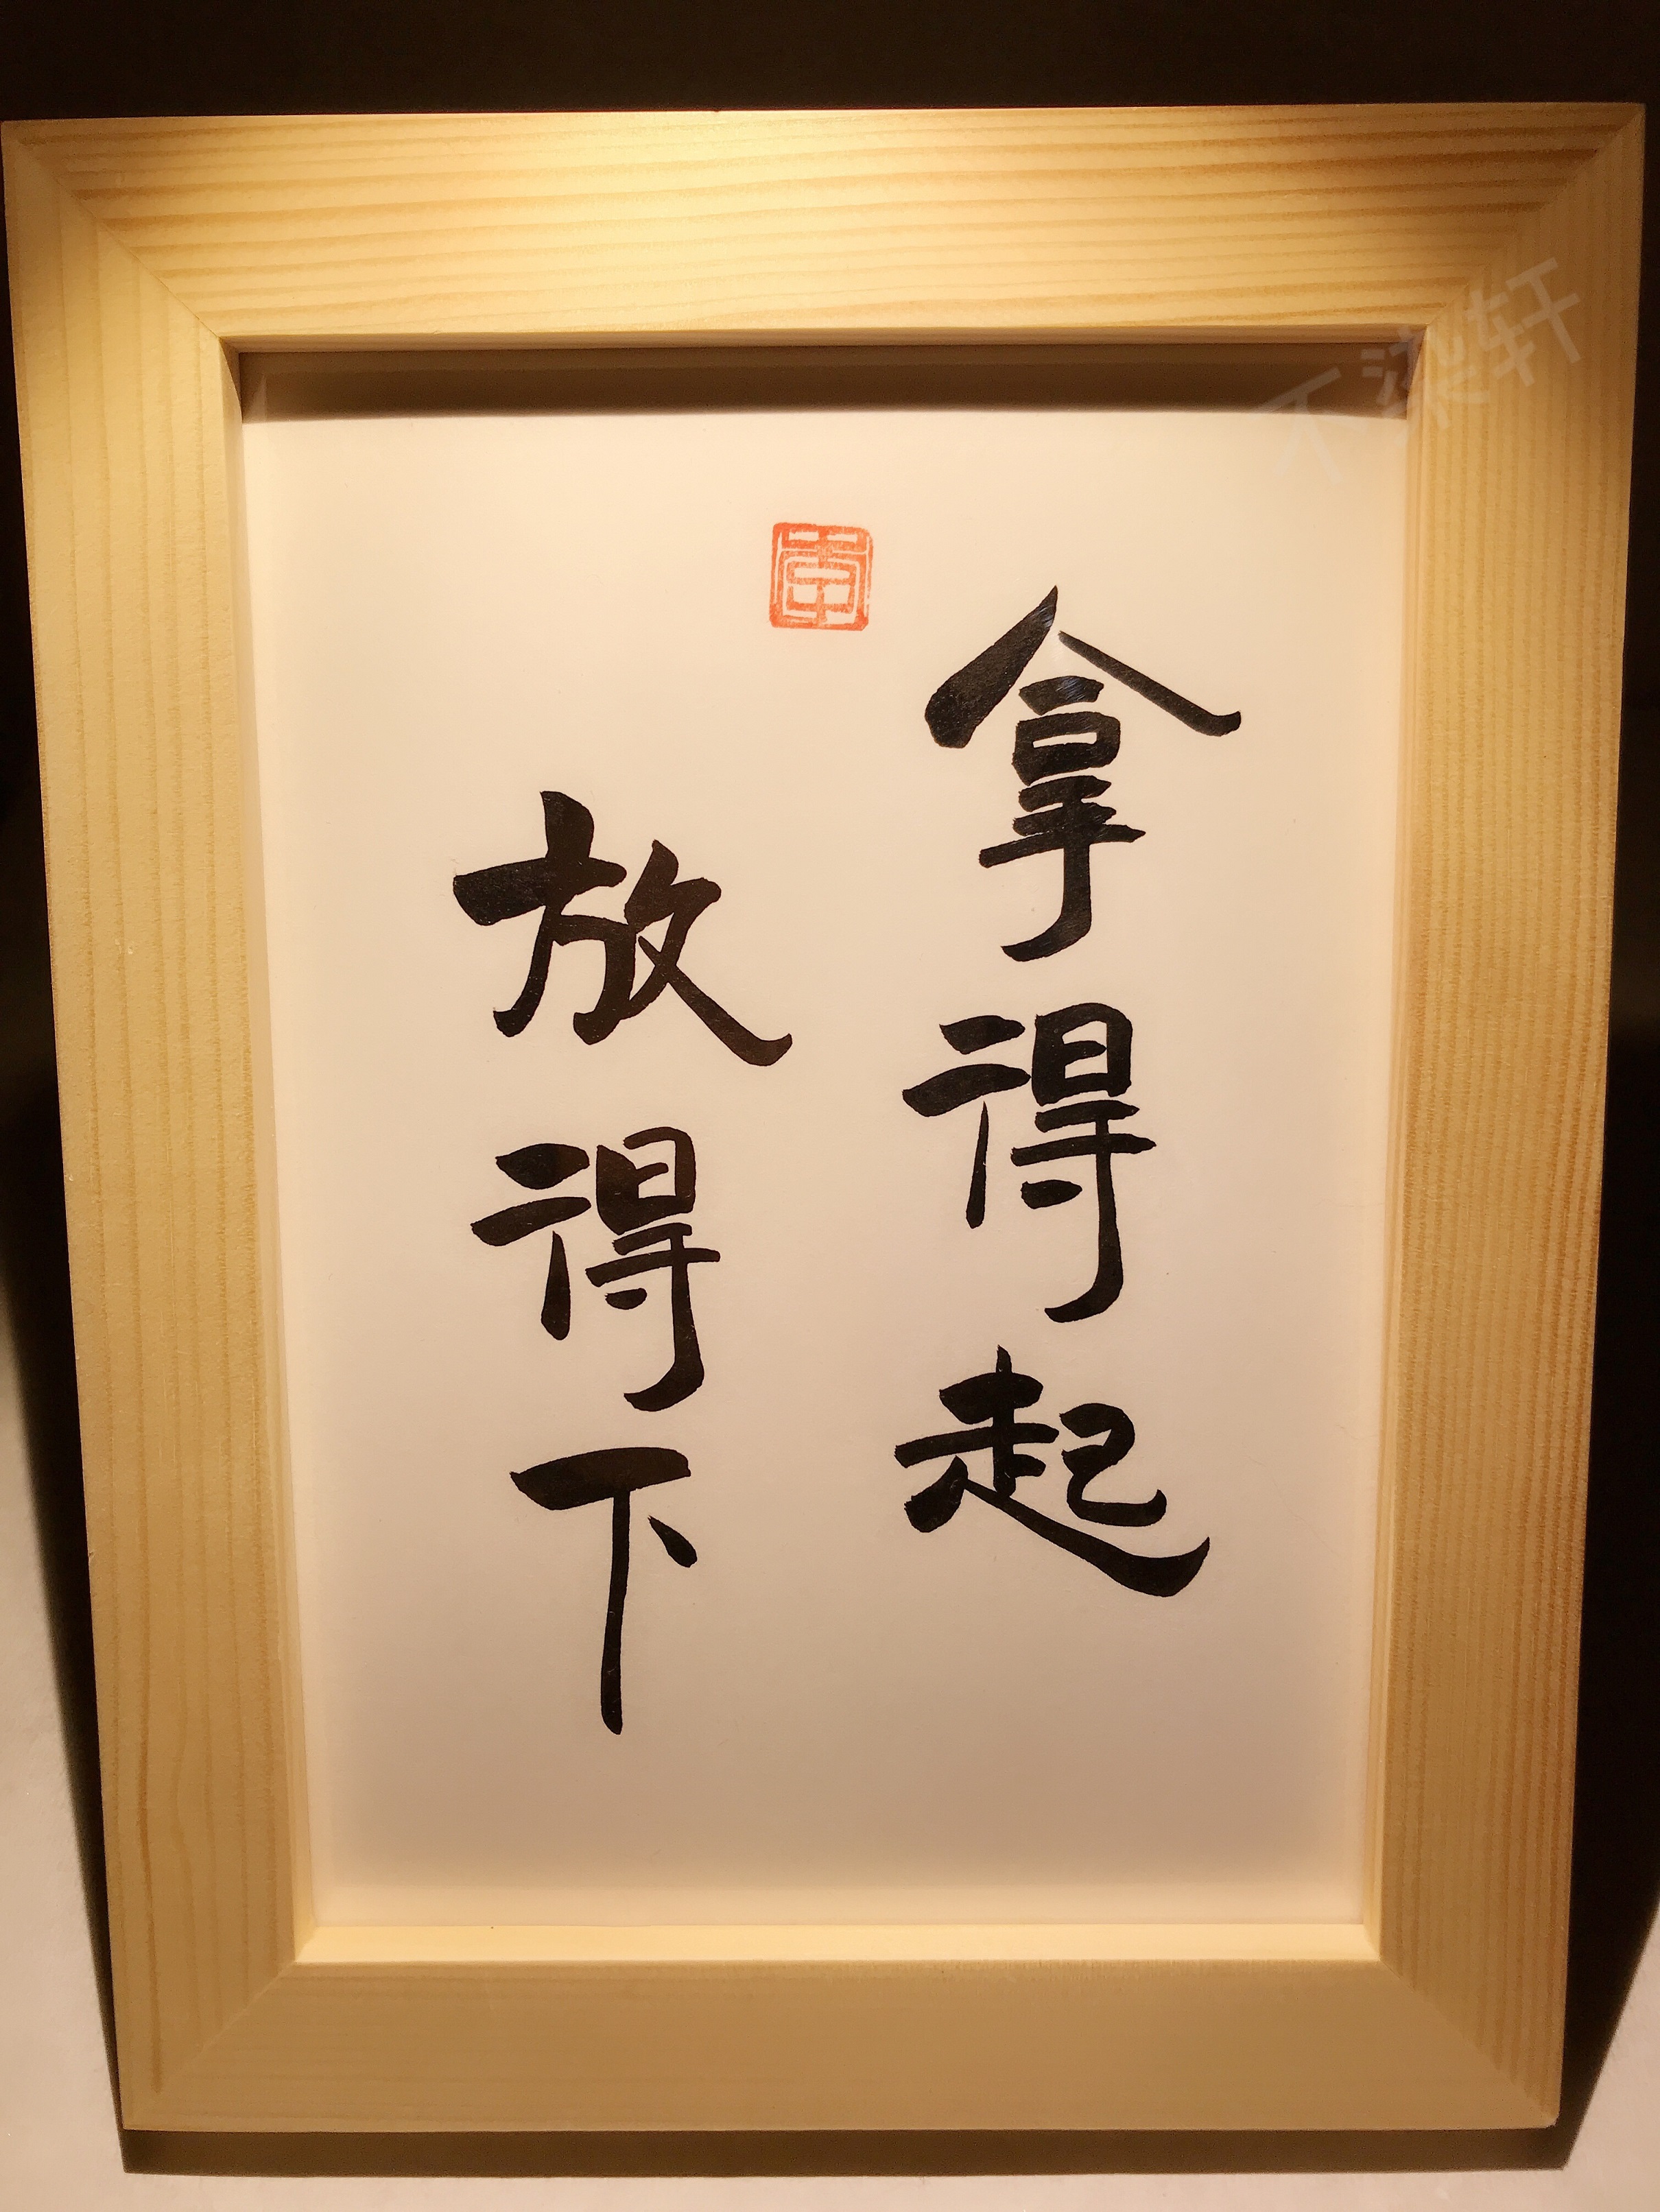 拿得起
放得下
不染轩